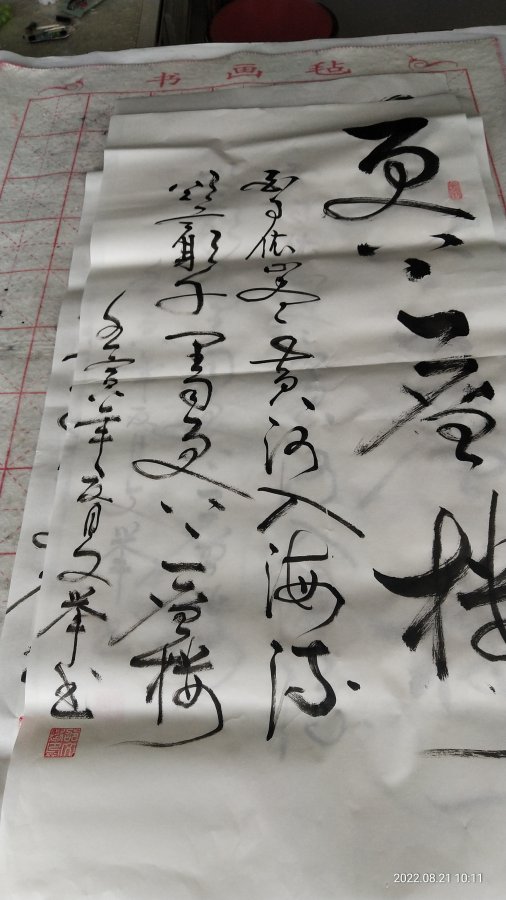 书画毡
更上一层楼
白日依山尽黄河入海流
欲穷千里目更上一层楼
壬寅年五月文举书
2022.08.21 10:11